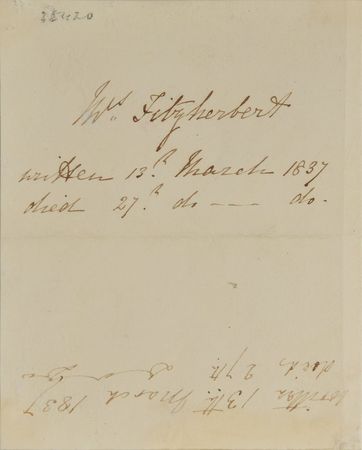 Mrs. Fitzherbert
written 13.th March 1837
died 27.th do —— do.
written 13th March 1837
died, 27th do do